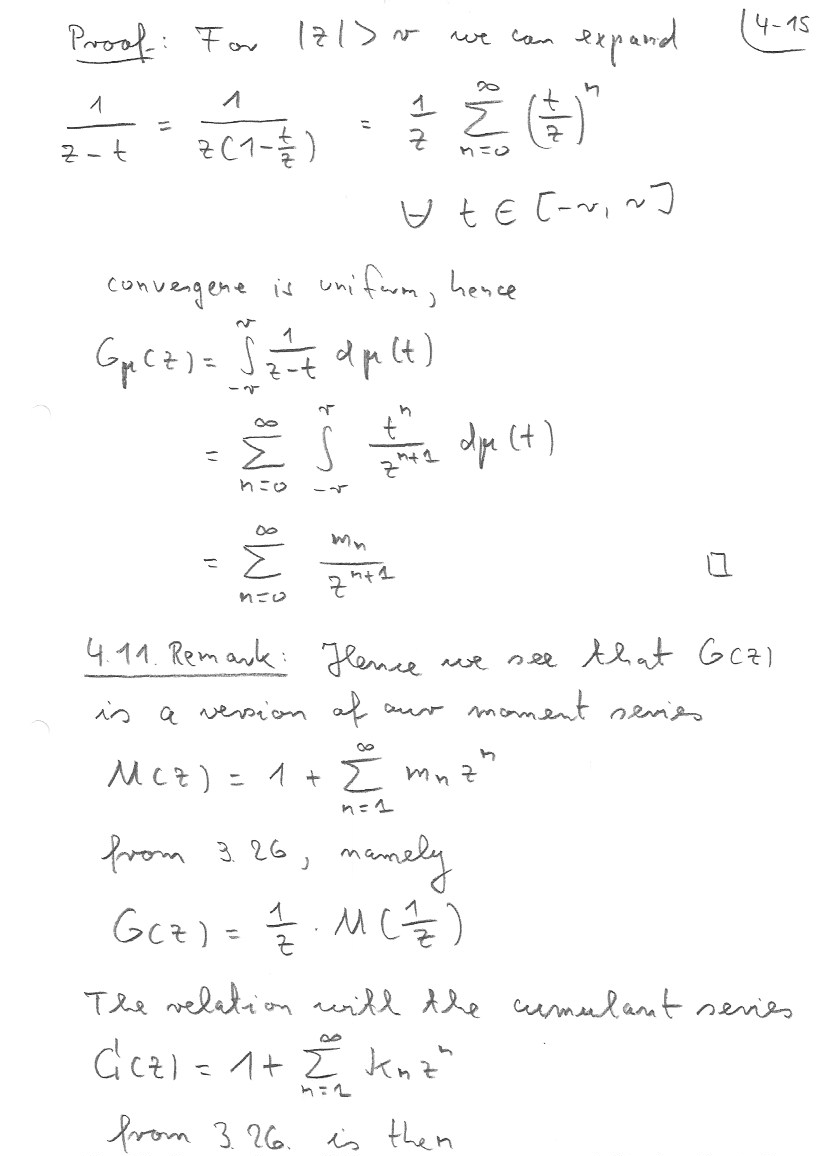 Proof: For |z| > r we can expand (4-15
1/(z-t) = 1/(z(1-t/z)) = 1/z ∑_{n=0}^∞ (t/z)^n
∀ t ∈ [-r, r]
convergene is uniform, hence
G_μ(z) = ∫_{-r}^{r} 1/(z-t) dμ(t)
= ∑_{n=0}^∞ ∫_{-r}^{r} t^n/z^{n+1} dμ(t)
= ∑_{n=0}^∞ m_n/z^{n+1} □
4.11. Remark: Hence we see that G(z)
is a version of our moment series
M(z) = 1 + ∑_{n=1}^∞ m_n z^n
from 3.26, namely
G(z) = 1/z · M(1/z)
The relation with the cumulant series
C(z) = 1 + ∑_{n=1}^∞ k_n z^n
from 3.26. is then